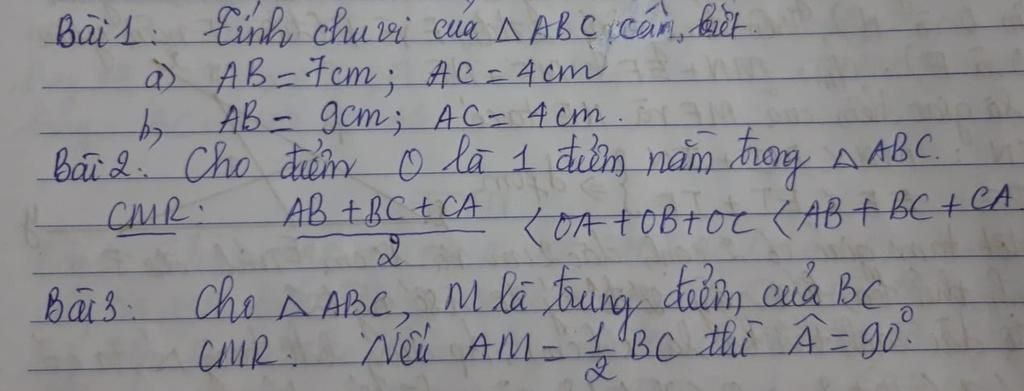 Bài 1: Tính chu vi của △ABC cân, biết.
a) AB = 7cm; AC = 4cm
b, AB = 9cm; AC = 4cm.
Bài 2: Cho điểm O là 1 điểm nằm trong △ABC.
CMR: \frac{AB + BC + CA}{2} < OA + OB + OC < AB + BC + CA
Bài 3: Cho △ABC, M là trung điểm của BC
CMR: Nếu AM = \frac{1}{2} BC thì \hat{A} = 90°.